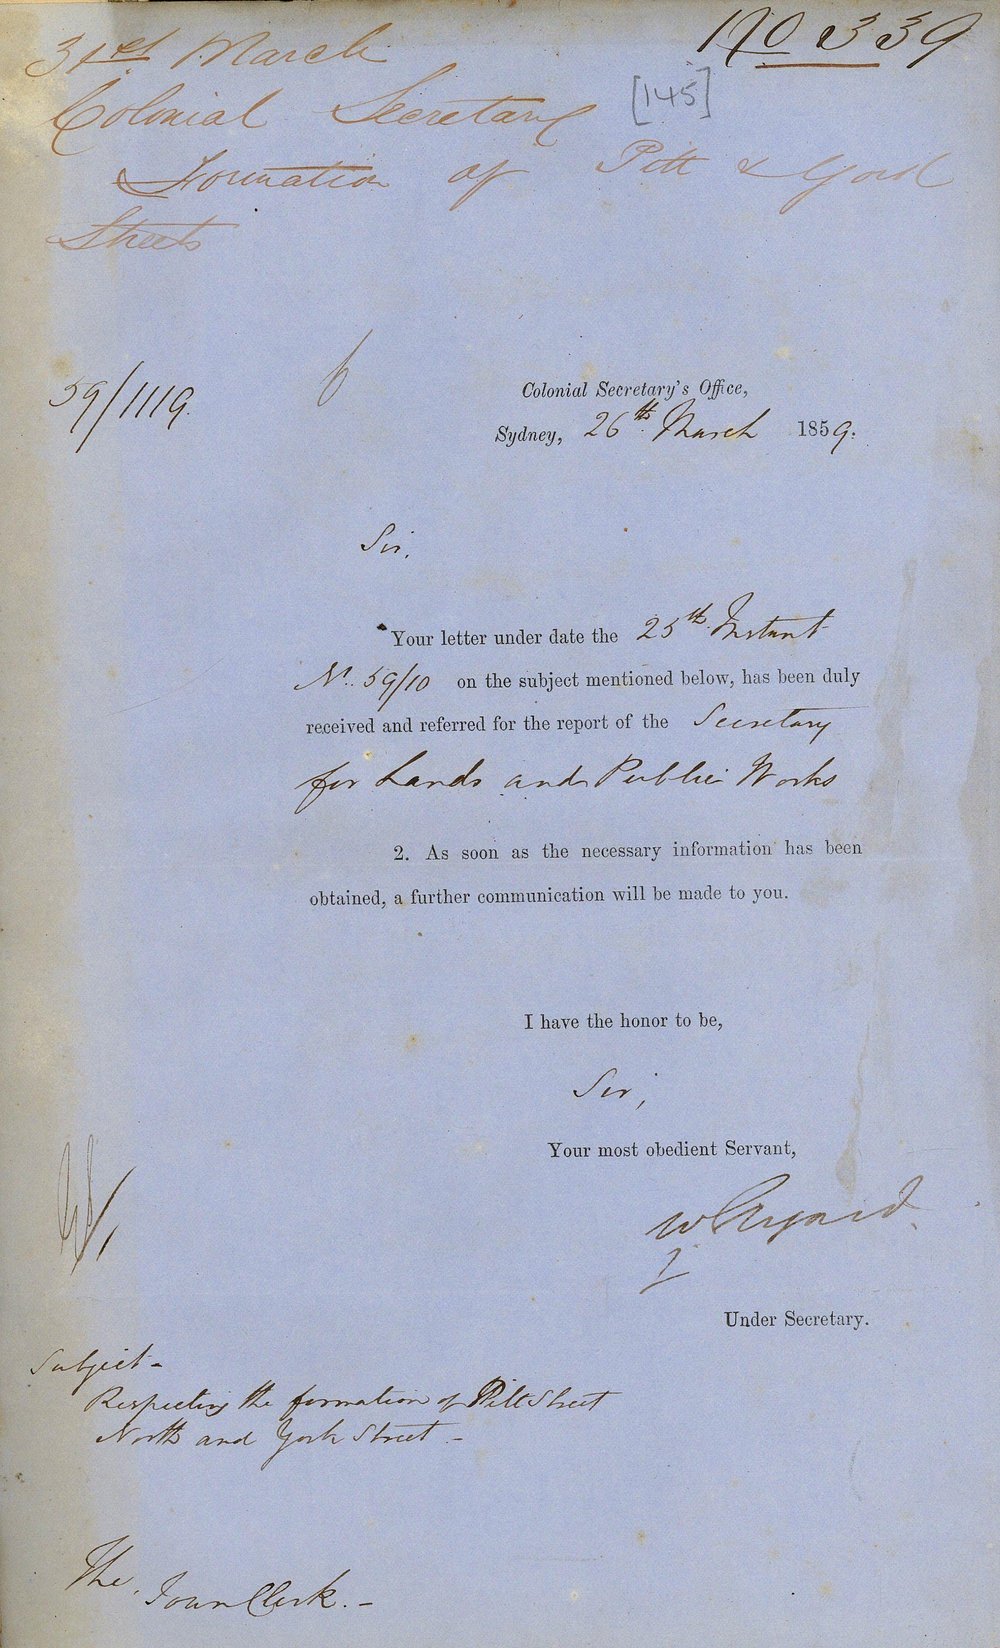 No 339
31st March
[145]
Colonial Secretary
Formation of Pitt & York
Streets
59/1119.
Colonial Secretary's Office,
Sydney, 26th March 1859.
Sir,
Your letter under date the 25th Instant
No. 59/10 on the subject mentioned below, has been duly
received and referred for the report of the Secretary
for Lands and Public Works
2. As soon as the necessary information has been
obtained, a further communication will be made to you.
I have the honor to be,
Sir,
Your most obedient Servant,
Under Secretary.
Subject -
Respecting the formation of Pitt Street
North and York Street -
The Town Clerk. -